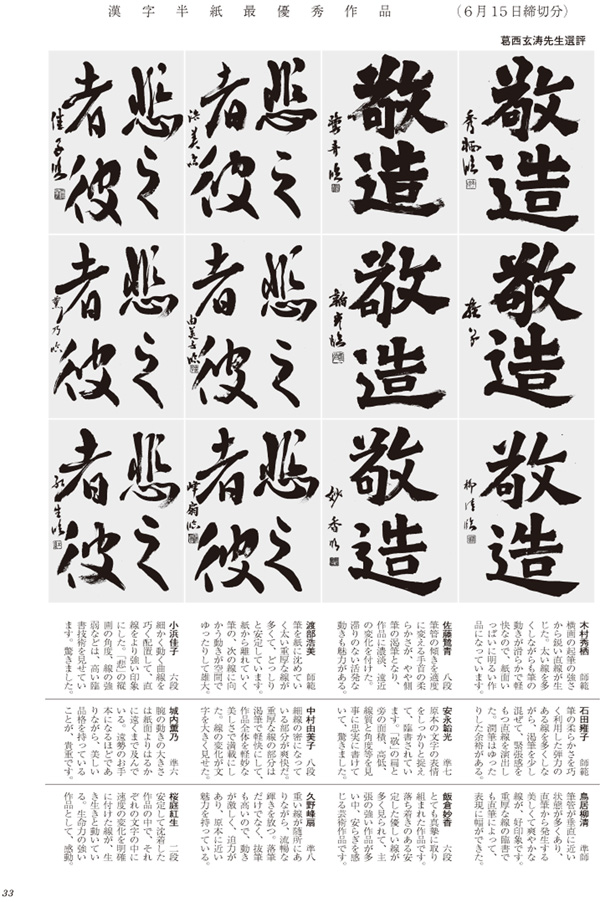 漢字半紙最優秀作品
（６月15日締切分）
葛西玄涛先生選評
敬造
秀栖臨
敬造
敬造
敬造
敬造
敬造
妙香臨
悲之
者彼
浩美臨
悲之
者彼
由美子臨
悲之
者彼
峰扇臨
悲之
者彼
佳子臨
悲之
者彼
薫乃臨
悲之
者彼
紅生臨
木村秀栖　師範
横画の起筆の強さ
から鋭い直線が生
じた。太い線を多
くしながらも筆の
動きが滑らかで軽
快なので、紙面い
っぱいに明るい作
品になっています。
佐藤鷺青　八段
筆管の傾きを適度
に変える手首の柔
らかさが、やや側
筆の渇筆となり、
作品に濃淡、遠近
の変化を付けた。
滞りのない活発な
動きも魅力がある。
渡部浩美　師範
筆を紙に沈めてい
く太い重厚な線が
多くて、どっしり
と安定しています。
紙から離れていく
筆の、次の線に向
かう動きが空間で
ゆったりして雄大。
小浜佳子　六段
細かく動く曲線を
巧く配置して、直
線をより強い印象
にした。「悲」の縦
画の角度、線の強
弱などは、高い臨
書技術を見せてい
ます。驚きました。
石田雍子　師範
筆の柔らかさを巧
く利用した弾力の
ある線を多くしな
がら、渇筆を少し
混ぜて、緊張感を
もつ直線を演出し
た。潤筆はゆった
りした余裕がある。
安永韶光　準七
原本の文字の表情
をしっかりと捉え
て、臨書されてい
ます。「敬」の扁と
旁の面積、高低、
線質と角度等を見
事に忠実に書けて
いて、驚きました。
中村由美子　八段
細線の密になって
いる部分が爽快だ。
重厚な線の部分は
渇筆で軽快にして、
作品全体を軽妙な
美しさで満載にし
た。線の変化が文
字を大きく見せた。
城内薫乃　準六
腕の動きの大きさ
は紙面よりはるか
に遠くまで及んで
いる。遠勢のお手
本になるほどであ
りながら、美しい
品格を持っている
ことが、貴重です。
鳥居柳清　準師
筆管が垂直に近い
状態が多くあり、
直筆から発生する
丸くて爽やかな
線が、好印象です。
重厚な線の臨書で
も直筆によって、
表現に幅ができた。
飯倉妙香　六段
とても真摯に取り
組まれた作品です。
落ち着きのある安
定した優しい線が
多く見られて、主
張の強い作品が多
い中、安らぎを感
じる芸術作品です。
久野峰扇　準八
重い線が随所にあ
りながら、流暢な
輝きを放つ。落筆
だけでなく、抜筆
も高いので、動き
が激しく、迫力が
あり、原本に近い
魅力を持っている。
桜庭紅生　二段
安定して沈着した
作品の中で、それ
ぞれの文字の中に
速度の変化を明確
に付けた線が、生
き生きと動いてい
る。生命力の強い
作品として、感動。
33